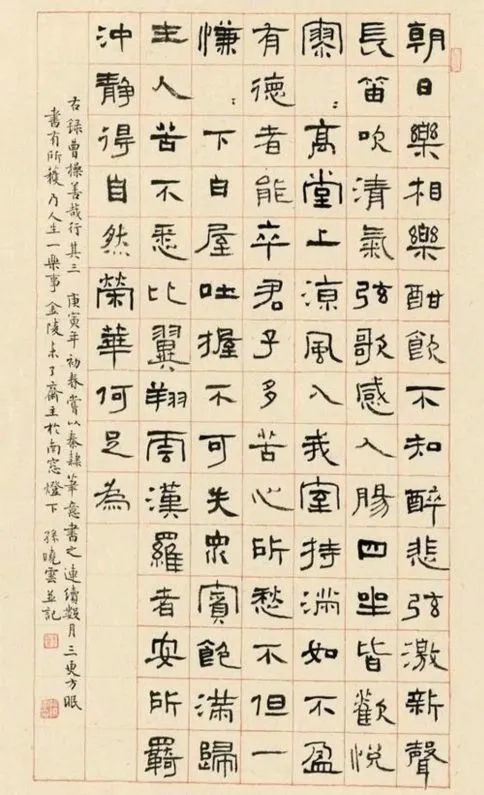 朝日樂相樂酣飲不知醉悲弦激新聲
長笛吹清氣弦歌感人腸四坐皆歡悅
寥：高堂上涼風入我室持滿如不盈
有德者能卒君子多苦心所愁不但一
慊：下白屋吐握不可失眾賓飽滿歸
主人苦不悉比翼翔雲漢羅者安所羇
沖靜得自然榮華何足為
右録曹操善哉行其三 庚寅年初春嘗以秦隸筆意書之連續數月三更方眠
書有所獲乃人生一樂事金陵未了齋主於南窓燈下 孫曉雲並記